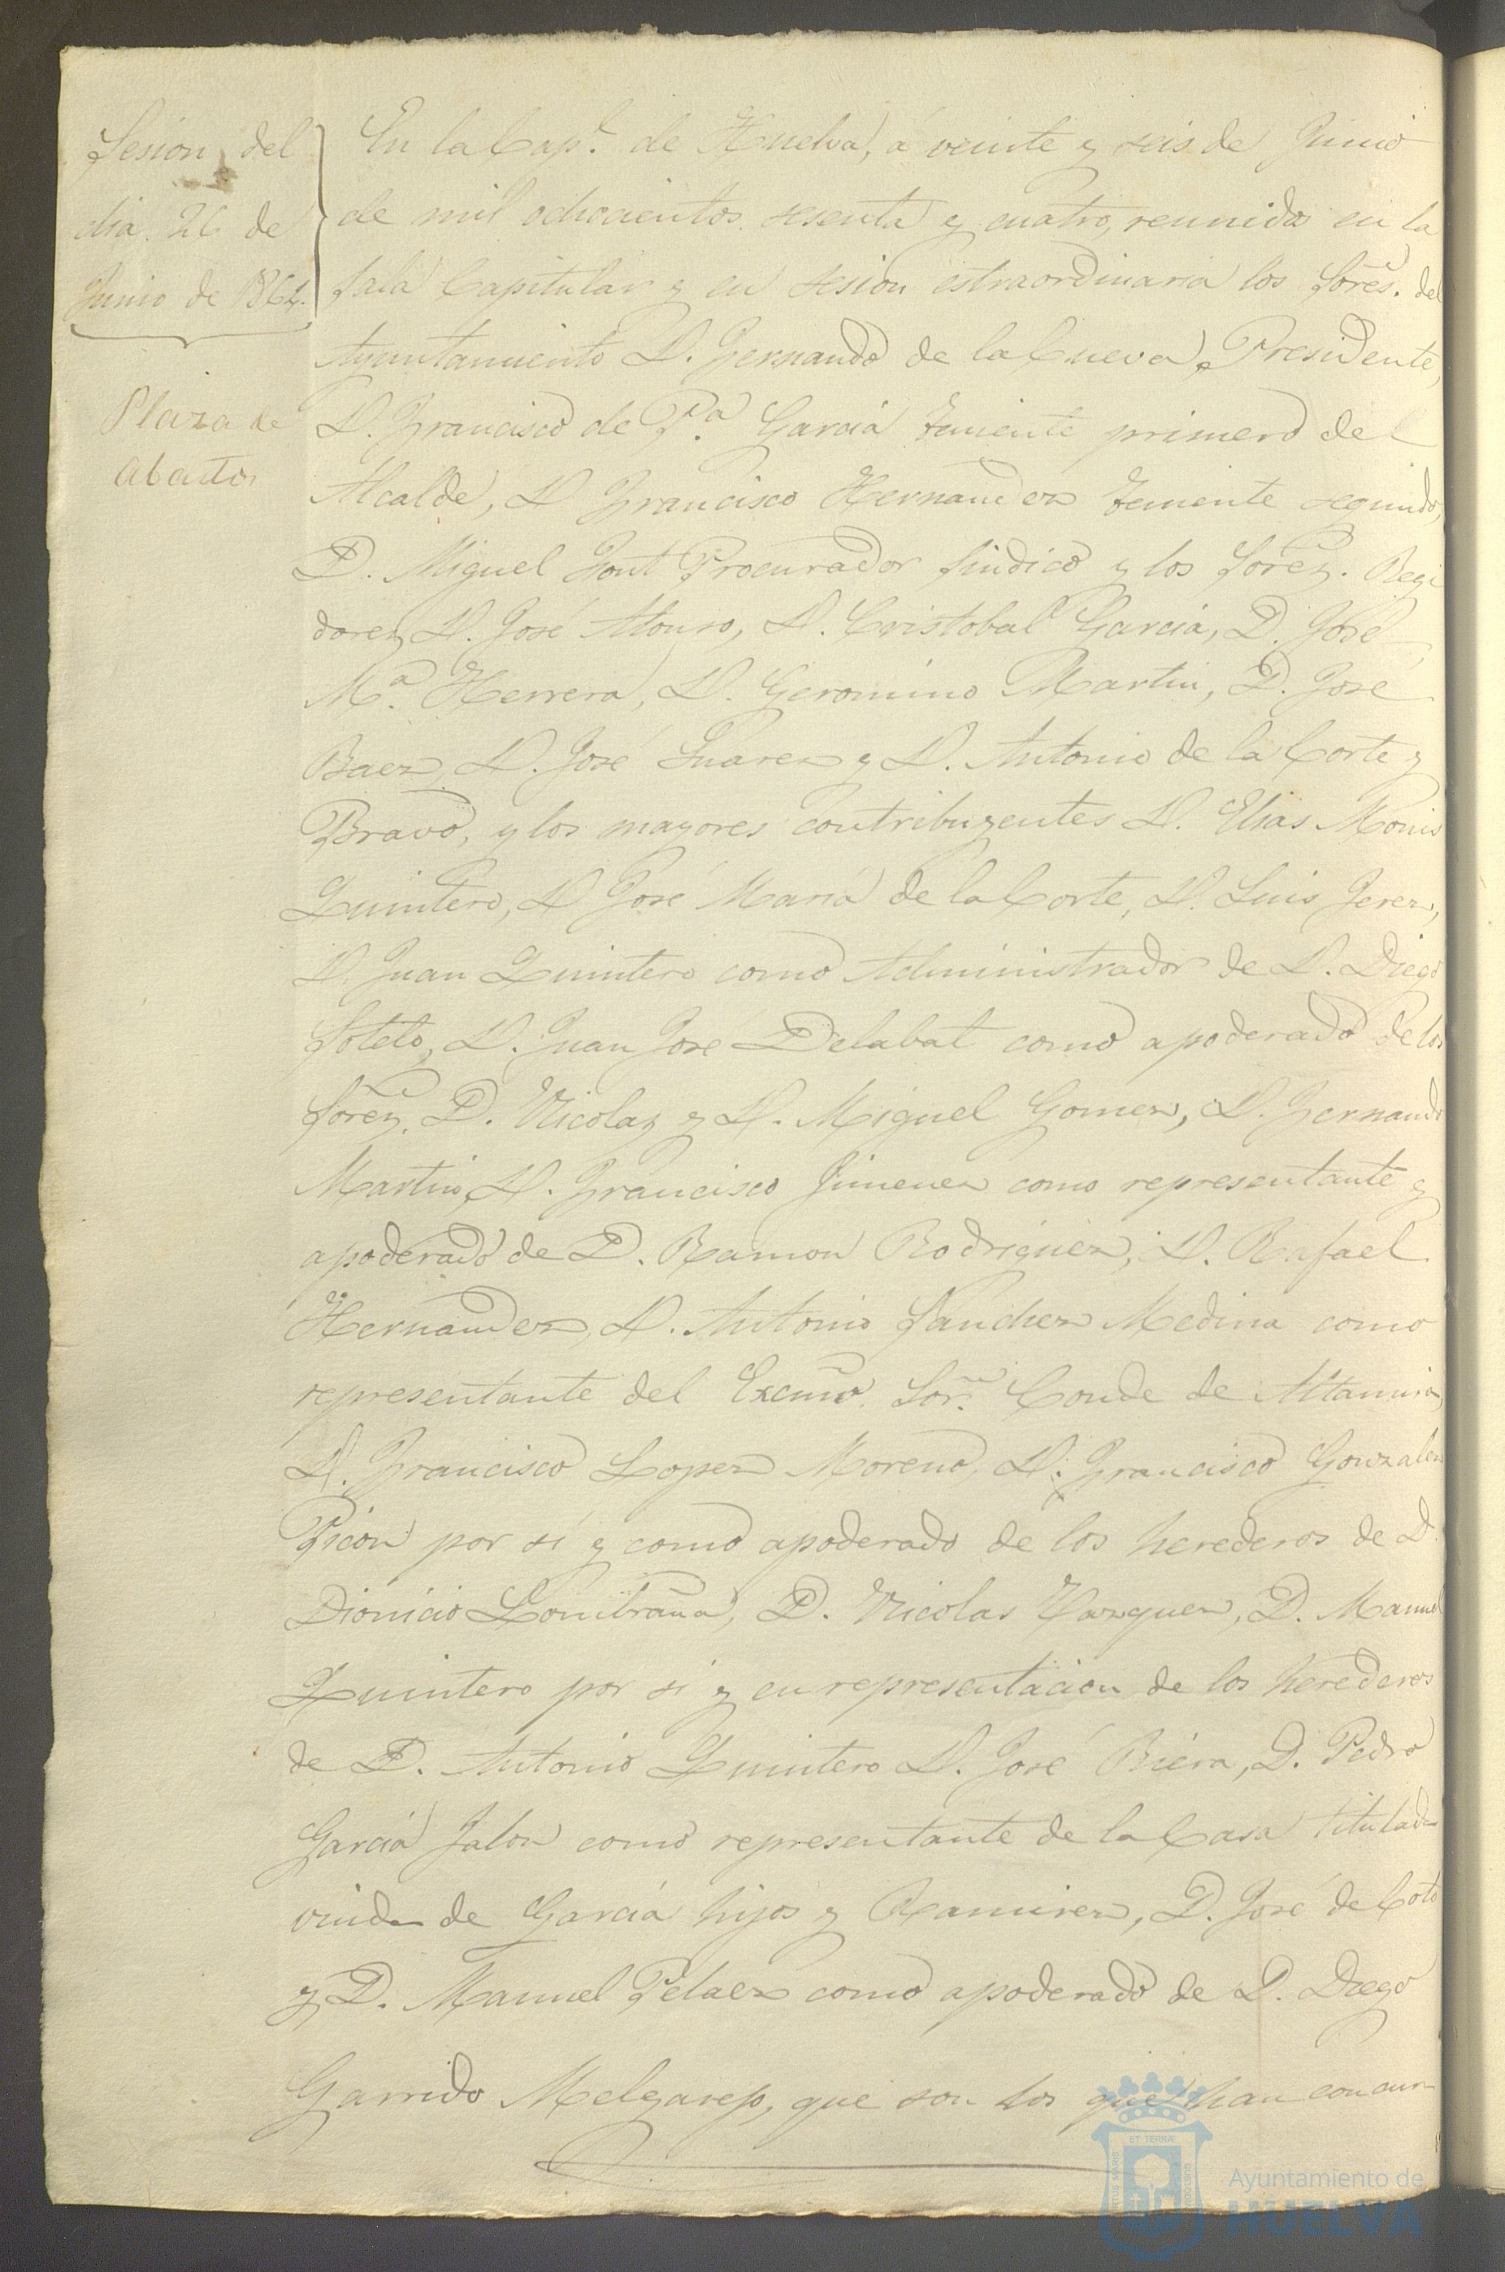 Sesion del
dia 26 de
Junio de 1864.
Plaza de
Abastos
En la Cap.l de Huelva, á veinte y seis de Junio
de mil ochocientos sesenta y cuatro, reunidos en la
Sala Capitular y en sesion estraordinaria los Sores. del
Ayuntamiento D. Fernando de la Cueva, Presidente,
D. Francisco de P.a García teniente primero del
Alcalde, D. Francisco Hernandez teniente segundo,
D. Miguel Font Procurador Sindico y los Sores. Regi
dores D. José Alonso, D. Cristobal García, D. José
M.a Herrera, D. Geronimo Martin, D. José
Baez, D. José Suarez y D. Antonio de la Corte y
Bravo, y los mayores contribuyentes D. Elias Monis
Quintero, D. José María de la Corte, D. Luis Jerez,
D. Juan Quintero como Administrador de D. Diego
Sotelo, D. Juan José Delabat como apoderado de los
Sores. D. Nicolas y D. Miguel Gomez, D. Fernando
Martin, D. Francisco Jimenez como representante y
apoderado de D. Ramon Rodriguez, D. Rafael
Hernandez, D. Antonio Sanchez Medina como
representante del Excmo. Sor. Conde de Altamira
D. Francisco Lopez Moreno, D. Francisco Gonzalez
Picon por sí y como apoderado de los herederos de D.
Dionicio Lombraña, D. Nicolas Vazquez, D. Manuel
Quintero por sí y en representacion de los herederos
de D. Antonio Quintero D. José Biera, D. Pedro
García Jalon como representante de la Casa titulada
viuda de García hijos y Ramirez, D. José de Coto
y D. Manuel Pelaez como apoderado de D. Diego
Garrido Melgarejo, que son los que han concur
Ayuntamiento de
HUELVA